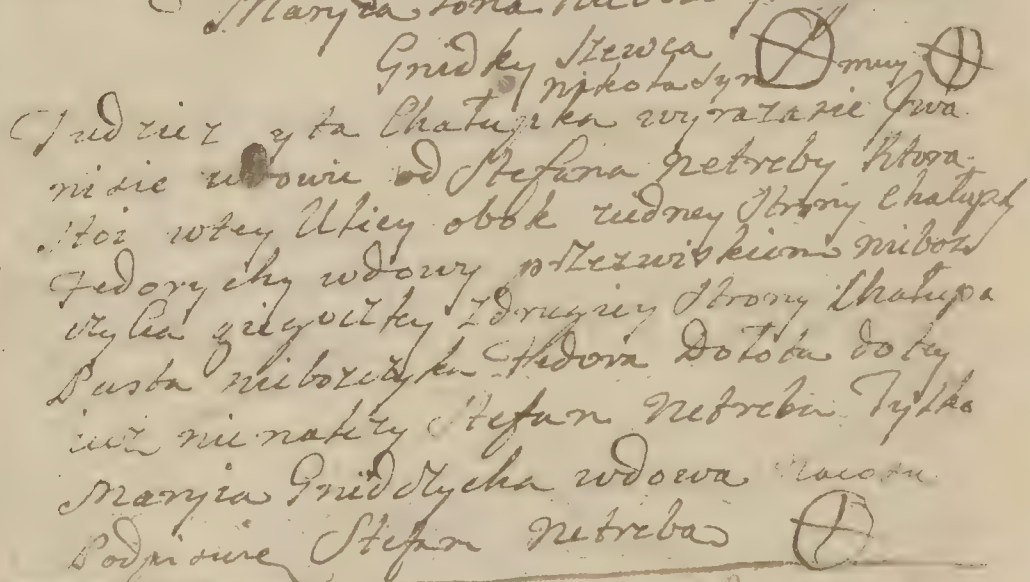 Maryia Zona
Gnidky Szewca muy
nikoładym
Tudziez y ta Chałupka wyrazasie Iwa
nisie wdowie od Stefana Netreby Ktora
Stoi wtey Ulicy obok ziedney Strony Chałupy
Fedorychy wdowy przezwiskiem niebosz
czyka Zdrugiey Strony Chałupa
Pusta nieboszczyka Fedora Dołota do tey
iuz nienalezy Stefan Netreba Tylko
Maryia Gnidczycha wdowa
Podpisuie Stefan Netreba